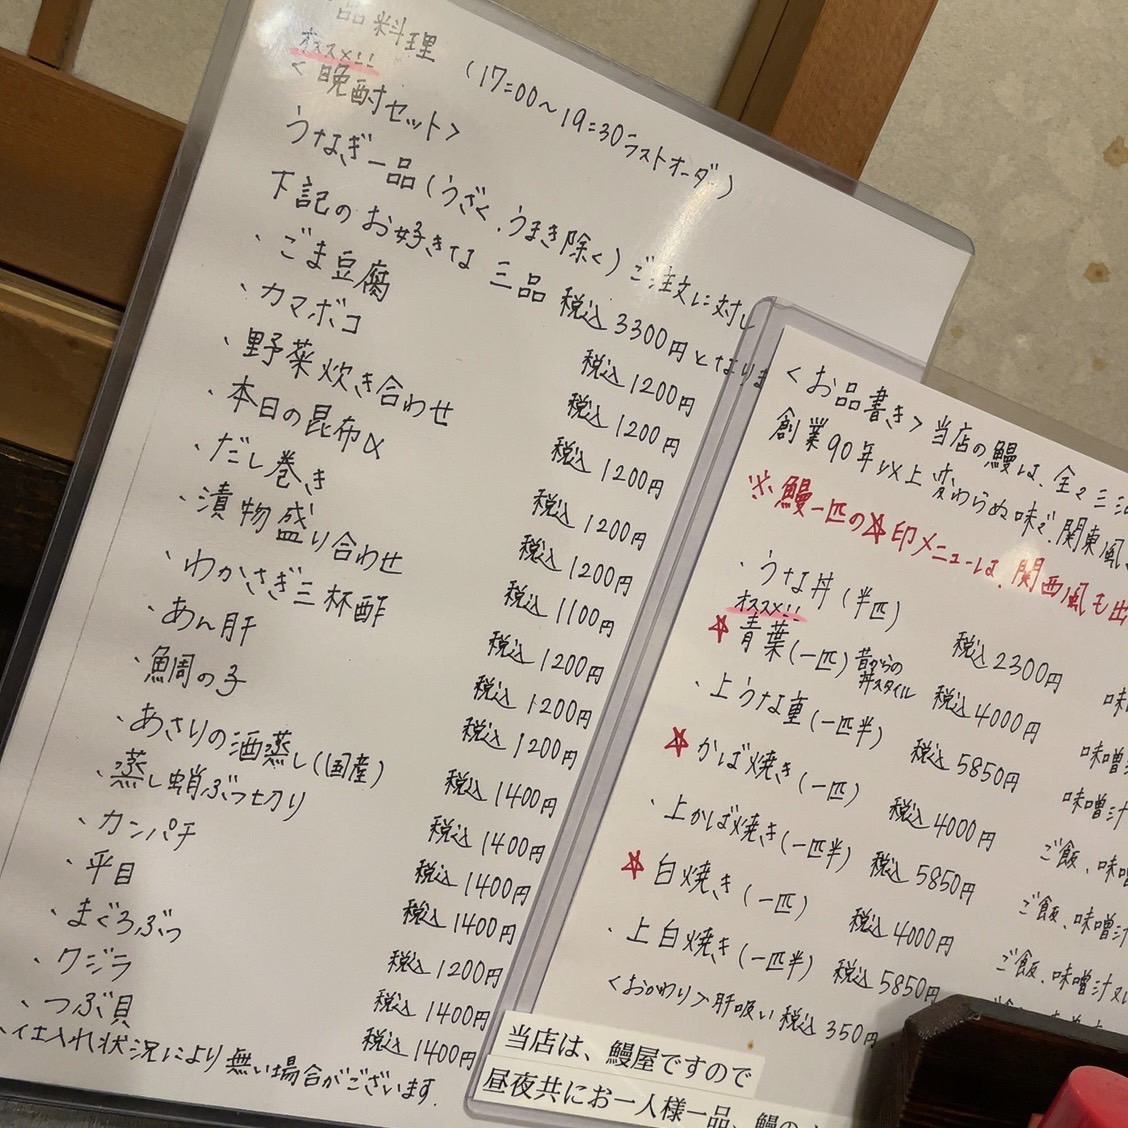 品料理 (17:00～19:30ラストオーダー)
オススメ!!
<晩酌セット>
うなぎ一品(うざく、うまき除く)ご注文に対し
下記のお好きな 三品 税込3300円となりま
・ごま豆腐 税込1200円
・カマボコ 税込1200円
・野菜炊き合わせ 税込1200円
・本日の昆布〆 税込1200円
・だし巻き 税込1200円
・漬物盛り合わせ 税込1100円
・わかさぎ三杯酢 税込1200円
・あん肝 税込1200円
・鯛の子 税込1200円
・あさりの酒蒸し(国産) 税込1400円
・蒸し蛸ぶつ切り 税込1400円
・カンパチ 税込1400円
・平目 税込1400円
・まぐろぶつ 税込1200円
・クジラ 税込1400円
・つぶ貝 税込1400円
、仕入れ状況により無い場合がございます。
<お品書き>当店の鰻は、全々三
創業90年以上変わらぬ味で、関東風
※鰻一匹の☆印メニューは、関西風も出
・うな丼(半匹) 税込2300円 味
オススメ!!
☆青葉(一匹)昔からの丼スタイル 税込4000円 味噌
・上うな重(一匹半) 税込5850円 味噌汁
☆かば焼き(一匹) 税込4000円 ご飯、味噌
・上かば焼き(一匹半) 税込5850円 ご飯、味噌汁
☆白焼き(一匹) 税込4000円 ご飯、味噌汁
・上白焼き(一匹半) 税込5850円
<おかわり>肝吸い 税込350円
当店は、鰻屋ですので
昼夜共にお一人様一品、鰻の